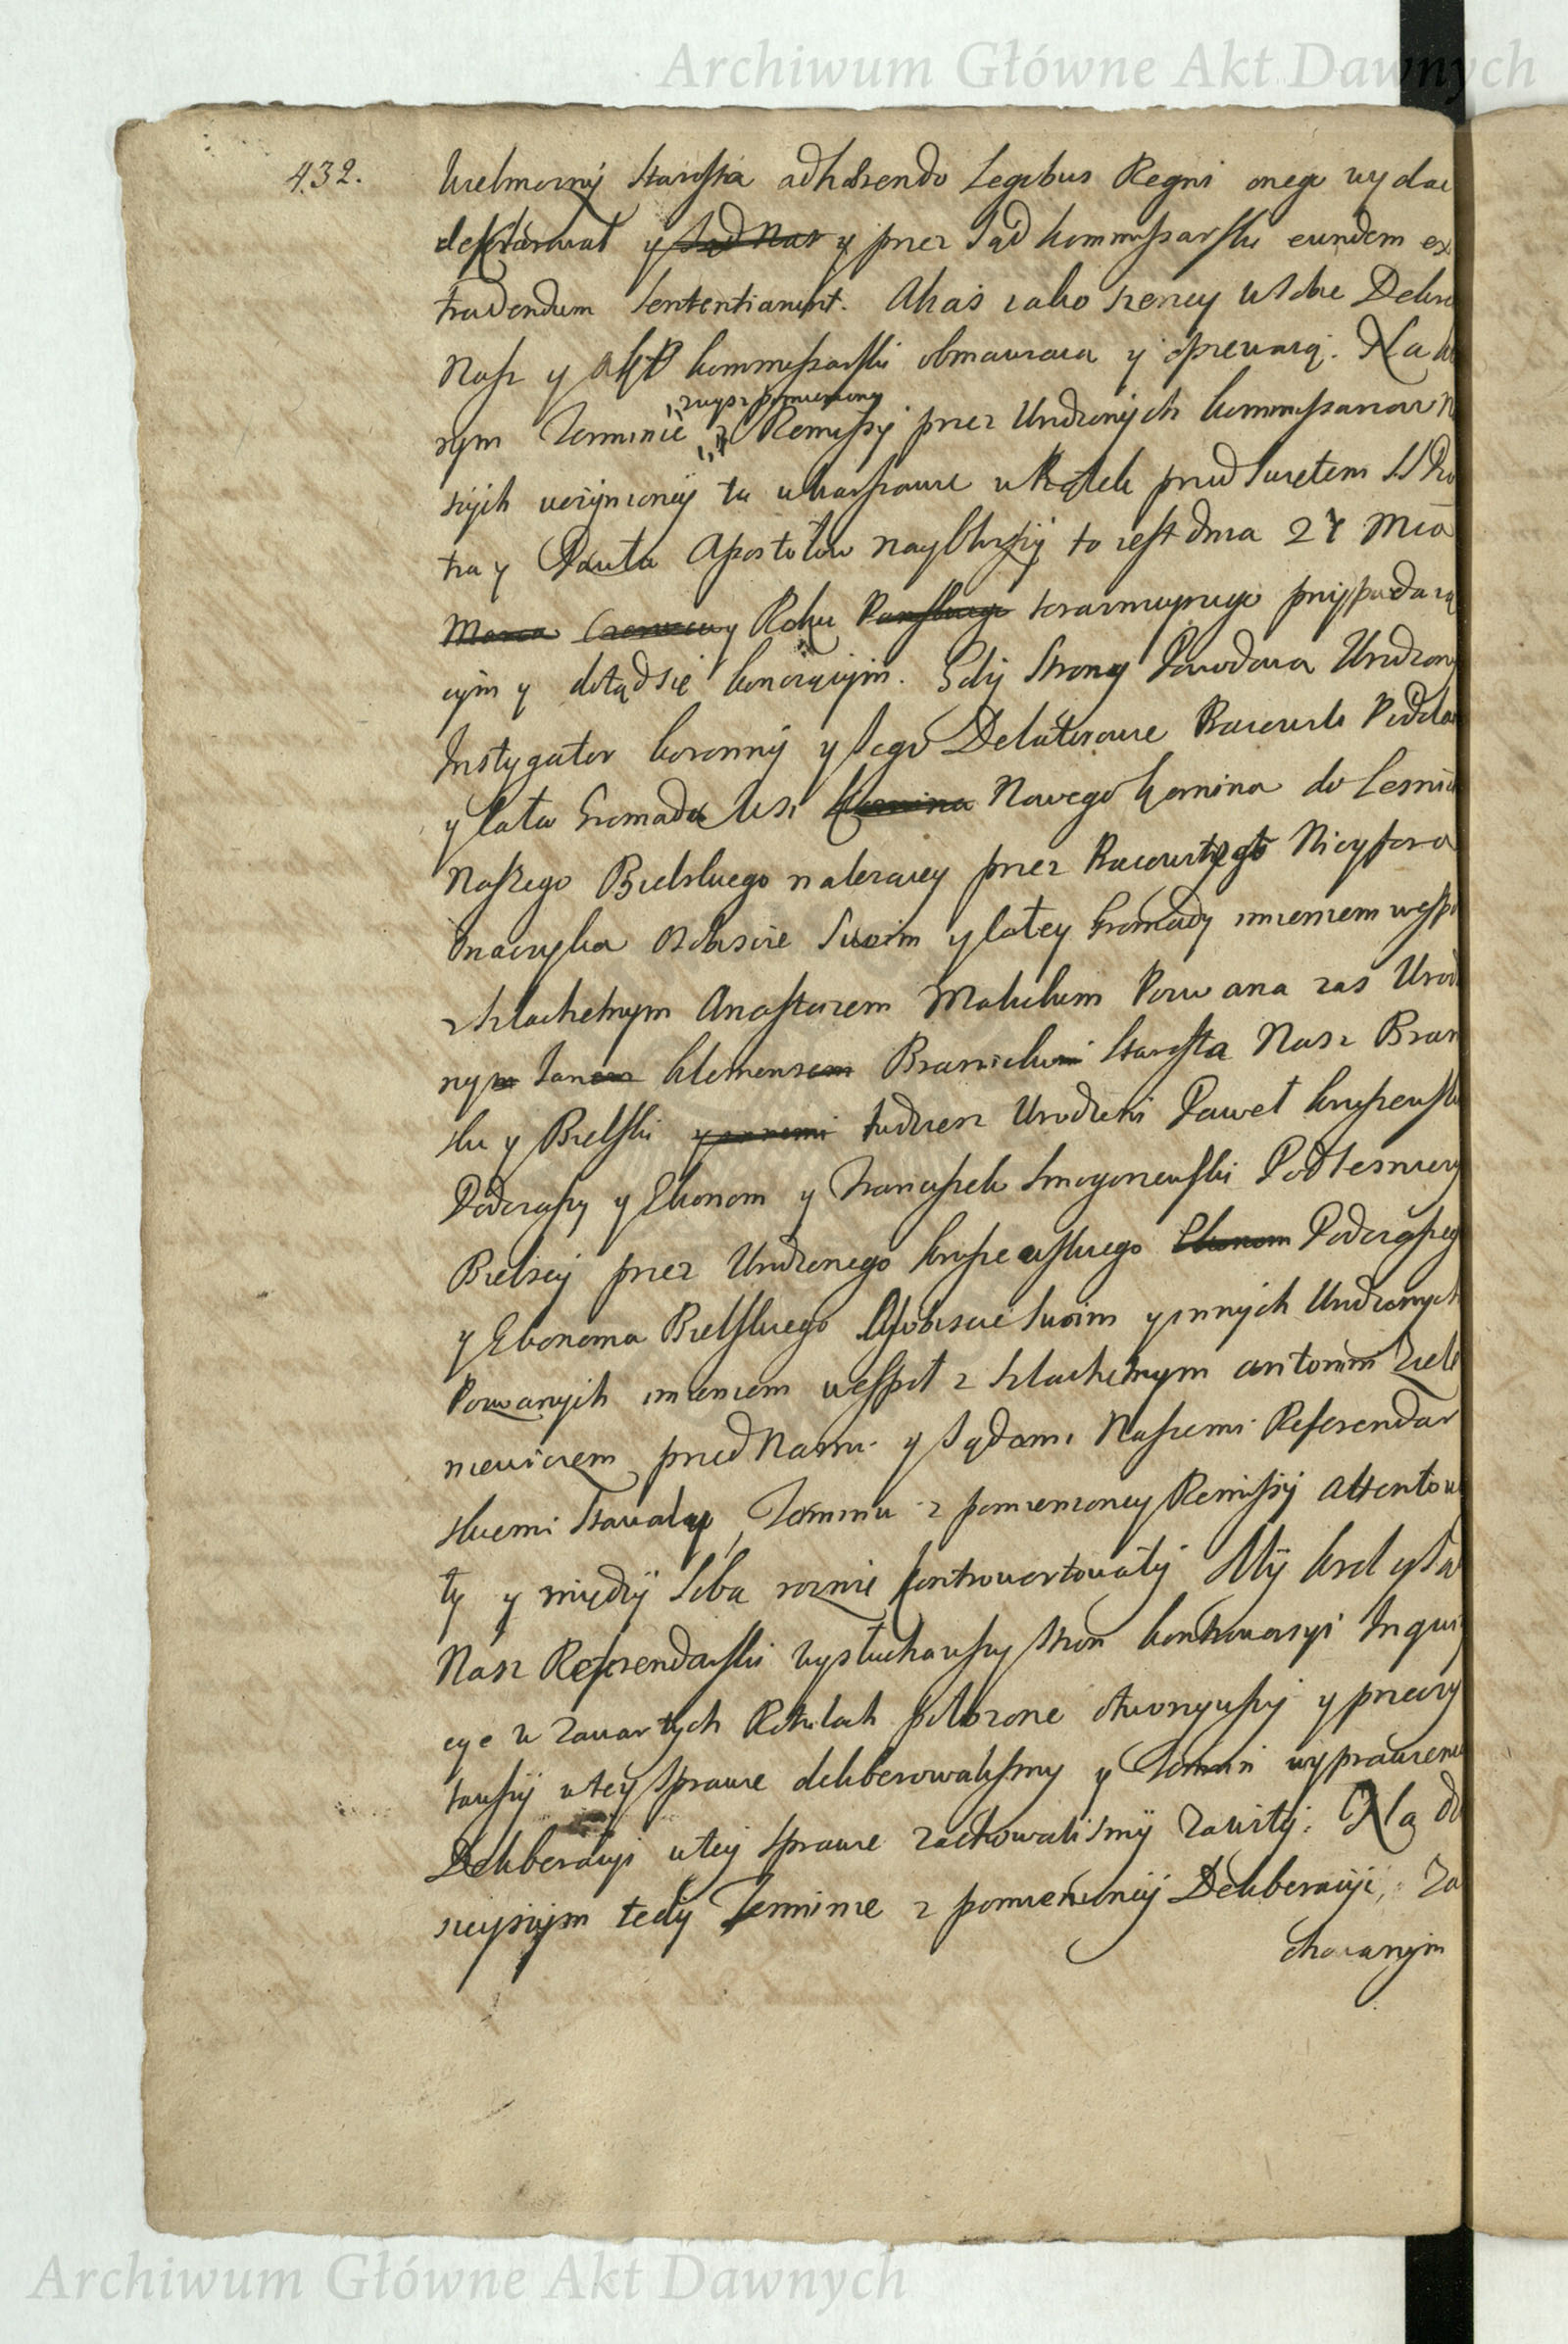 Archiwum Główne Akt Dawnych
432.
Wielmozny Starosta adhærendo Legibus Regni onego wydac
deklarował y Sąd Nasz y przez Sąd kommissarski eundem ex
tradendum Sententiavit. Akas iako szerzey w Sobie Dekre
Nasz y Akt kommissarski obmawiaią y opiewaią. Na kto
rym Terminie z Remissy przez Urodzonych kommissarzow N
zwysz pomieniony
szych uczynioney tu w Warszawie w Piątek przed Swiętem SS Pio
tra y Pawła Apostołow nayblizszy to iest dnia 27 Mca
Marca Czerwca y Roku Panskiego teraznieyszego przypadaią
cym y dotąd się konczącym. Gdy Strony Powodowa Urodzony
Instygator koronny y Iego Delatorowie Pracowici Poddan
y cała Gromada Wsi Kornina Nowego Kornina do Lesnic
Naszego Bielskiego nalezacey przez Pracowitego Nicypora
Onaczyka Osobiscie Swoim y całey Gromady imieniem wespo
z Szlachetnym Anastazem Malickim Pozwana zas Urod
nym Janem klemensem Branickim Starosta Nasz Bran
ski y Bielski y innemi tudziesz Urodzeni Paweł kruszewsk
Podczaszy y Ekonom y Franciszek Smogorzewski Podlesniczy
Bielscy przez Urodzonego kruszewskiego Ekonom Podczaszeg
y Ekonoma Bielskiego Osobiscie Swoim y innych Urodzonych
Pozwanych imieniem wespoł z Szlachetnym Antonim Ziele
niewiczem przed Nami y Sądami Naszemi Referendar
skiemi Stawały, Terminu z pomienioney Remissy attentowa
ły y między Sobą roznie kontrowertowały My krol y Są
Nasz Referendarski wysłuchawszy Stron kontrowersyi Inqui
cye w Zawartych Rotułach połozone otworzywszy y przeczy
tawszy w tey Sprawie deliberowalismy y Termin wyprawienia
Deliberacyi w tey Sprawie zachowalismy Zawity. Na dz
sieyszym tedy Terminie z pomienioney Deliberacyi, Za
chowanym
Archiwum Główne Akt Dawnych